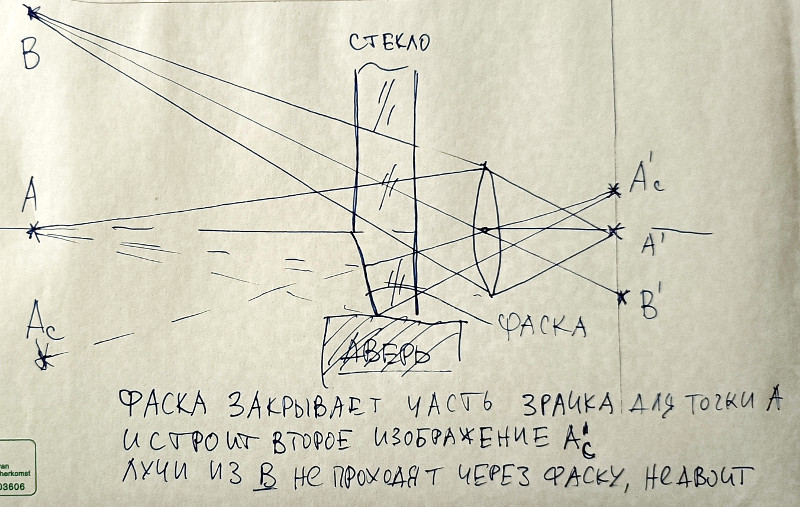 СТЕКЛО
B
A
A'c
A'
B'
Ac
ФАСКА
ДВЕРЬ
ФАСКА ЗАКРЫВАЕТ ЧАСТЬ ЗРАЧКА ДЛЯ ТОЧКИ А
И СТРОИТ ВТОРОЕ ИЗОБРАЖЕНИЕ A'c
ЛУЧИ ИЗ B НЕ ПРОХОДЯТ ЧЕРЕЗ ФАСКУ, НЕ ДВОИТ
03606